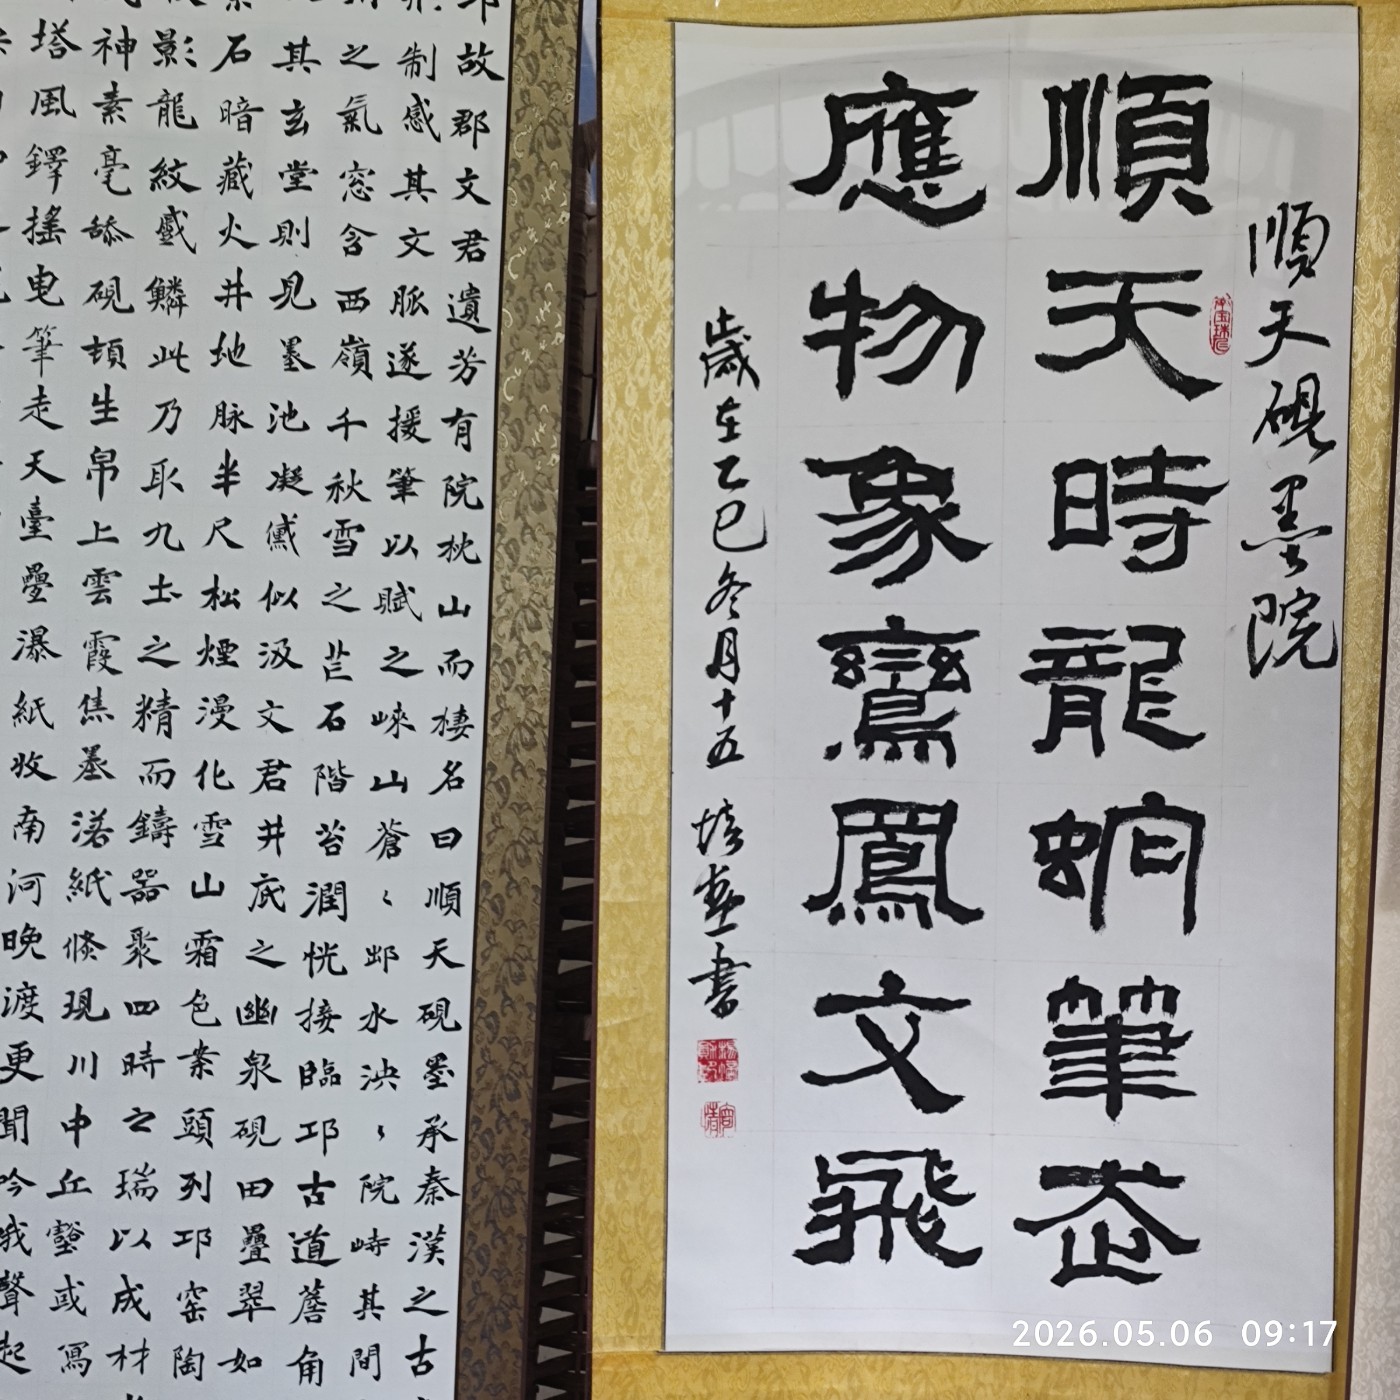 順天硯墨院
順天時龍筆走
應物象鸞鳳文飛
歲在乙巳冬月十五 培書
故郡文君遺芳有院枕山而棲名曰順天硯墨承秦漢之古
制感其文脈遂援筆以賦之崍山蒼〻邛水泱〻院峙其間
之氣窓含西嶺千秋雪之芒石階苔潤恍接臨邛古道簷角
其玄堂則見墨池凝黛似汲文君井底之幽泉硯田疊翠如
石暗藏火井地脉半尺松煙漫化雪山霜色案頭列邛窑陶
影龍紋戲鱗此乃取九土之精而鑄器聚四時之瑞以成材
神素毫舔硯頓生帛上雲霞焦墨渃紙倏現川中丘壑或寫
塔風鐸搖电筆走天臺疊瀑紙收南河晚渡更聞吟哦聲起
2026.05.06 09:17